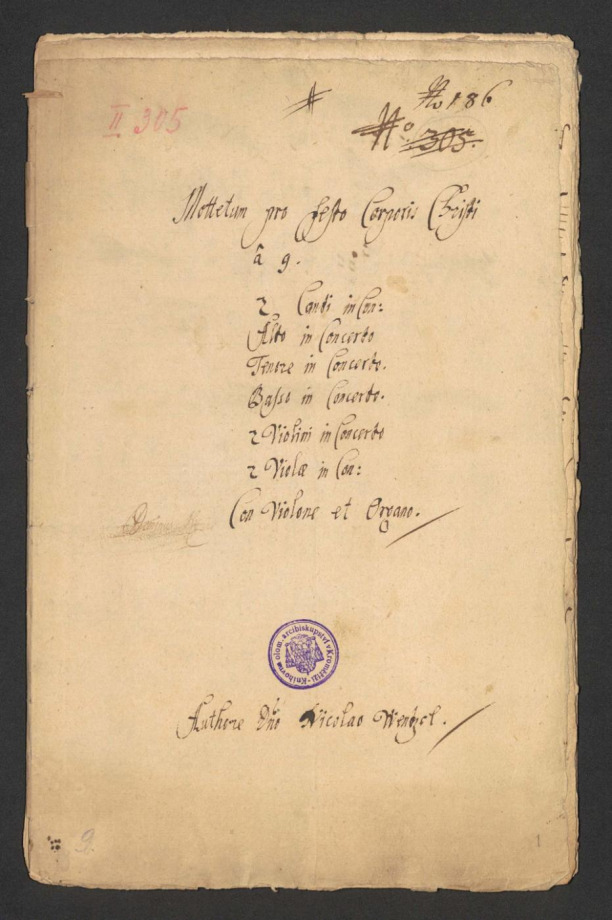 II 305
No 186
No 305.
Mottetum pro festo Corporis Christi
â 9.
2 Canti in Con:
Alto in Concerto
Tenore in Concerto.
Basso in Concerto.
2 Violini in Concerto
2 Violæ in Con:
Con Violone et Organo.
Knihovna olom. arcibiskupství v Kroměříži
Authore Dño Nicolao Wentzel.
9
1